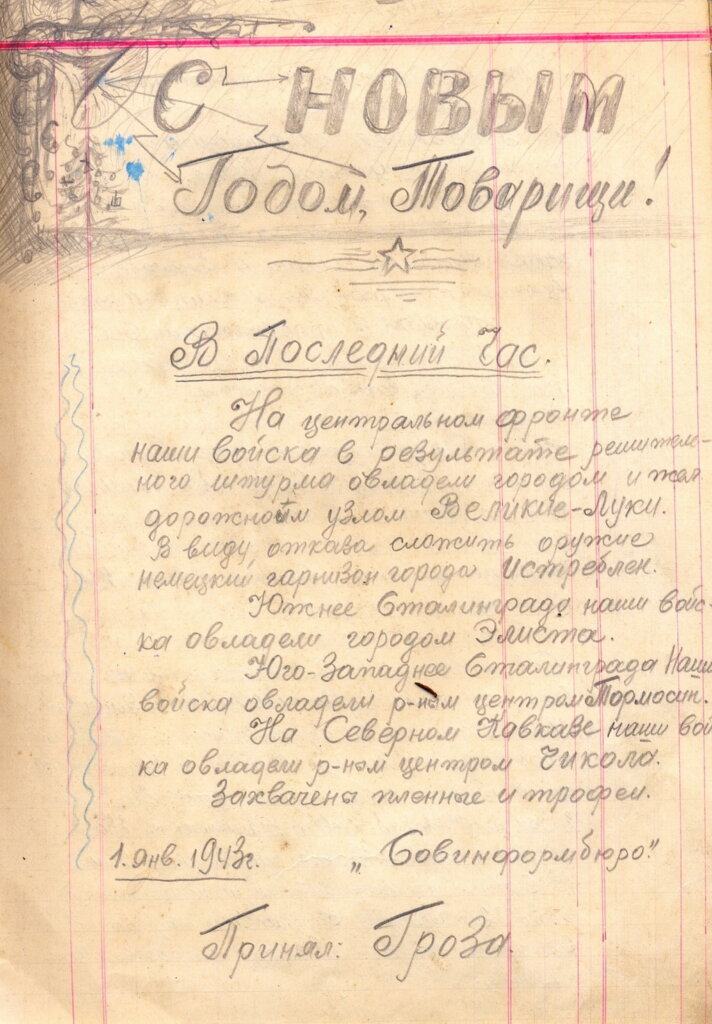 С НОВЫМ
Годом, Товарищи!
В Последний Час.
На центральном фронте
наши войска в результате решитель-
ного штурма овладели городом и жел
дорожном узлом Великие-Луки.
В виду отказа сложить оружие
немецкий гарнизон города истреблен.
Южнее Сталинграда наши войс-
ка овладели городом Элиста.
Юго-Западнее Сталинграда Наши
войска овладели р-ным центром Тормосин.
На Северном Кавказе наши вой
ка овладели р-ным центром Чикола.
Захвачены пленные и трофеи.
1. янв. 1943г. „Совинформбюро."
Принял: Гроза.